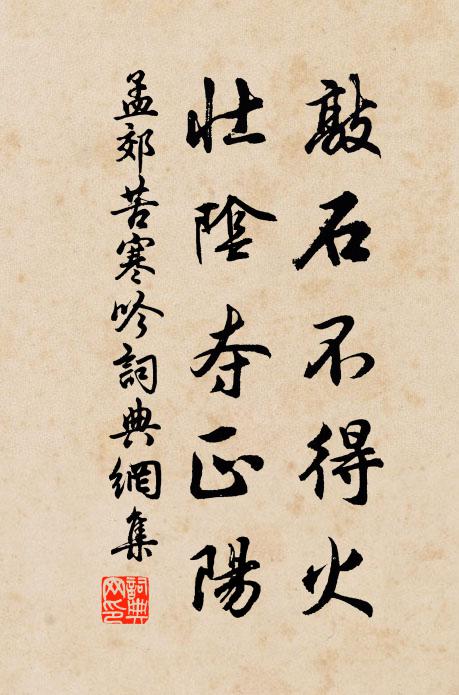 敲石不得火
壯陰夺正陽
孟郊苦寒吟詞典網集
詞典
网印